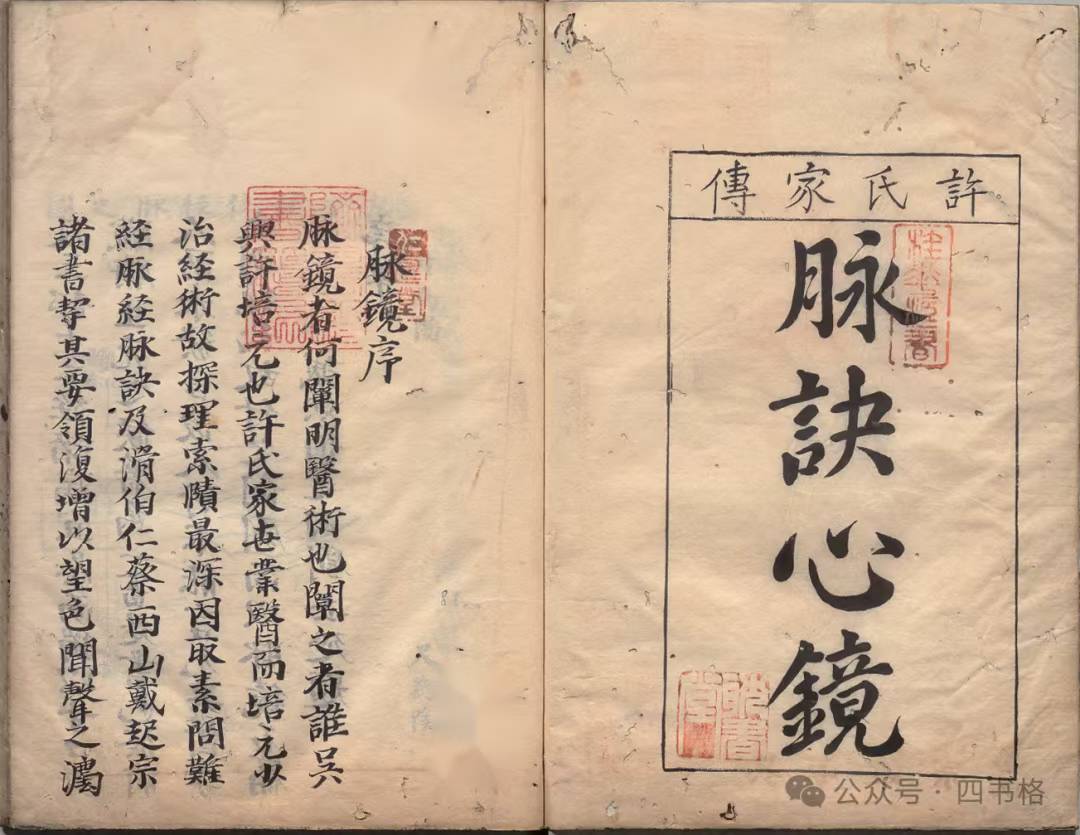 許氏家傳
脉訣心鏡
脉鏡序
脉鏡者何闡明醫術也闡之者誰吳
興許培元也許氏家世業醫而培元少
治經術故探理索賾最深因取素問難
經脉經脉訣及滑伯仁蔡西山戴起宗
諸書挈其要領復增以望色聞聲之
公众号 · 四书格